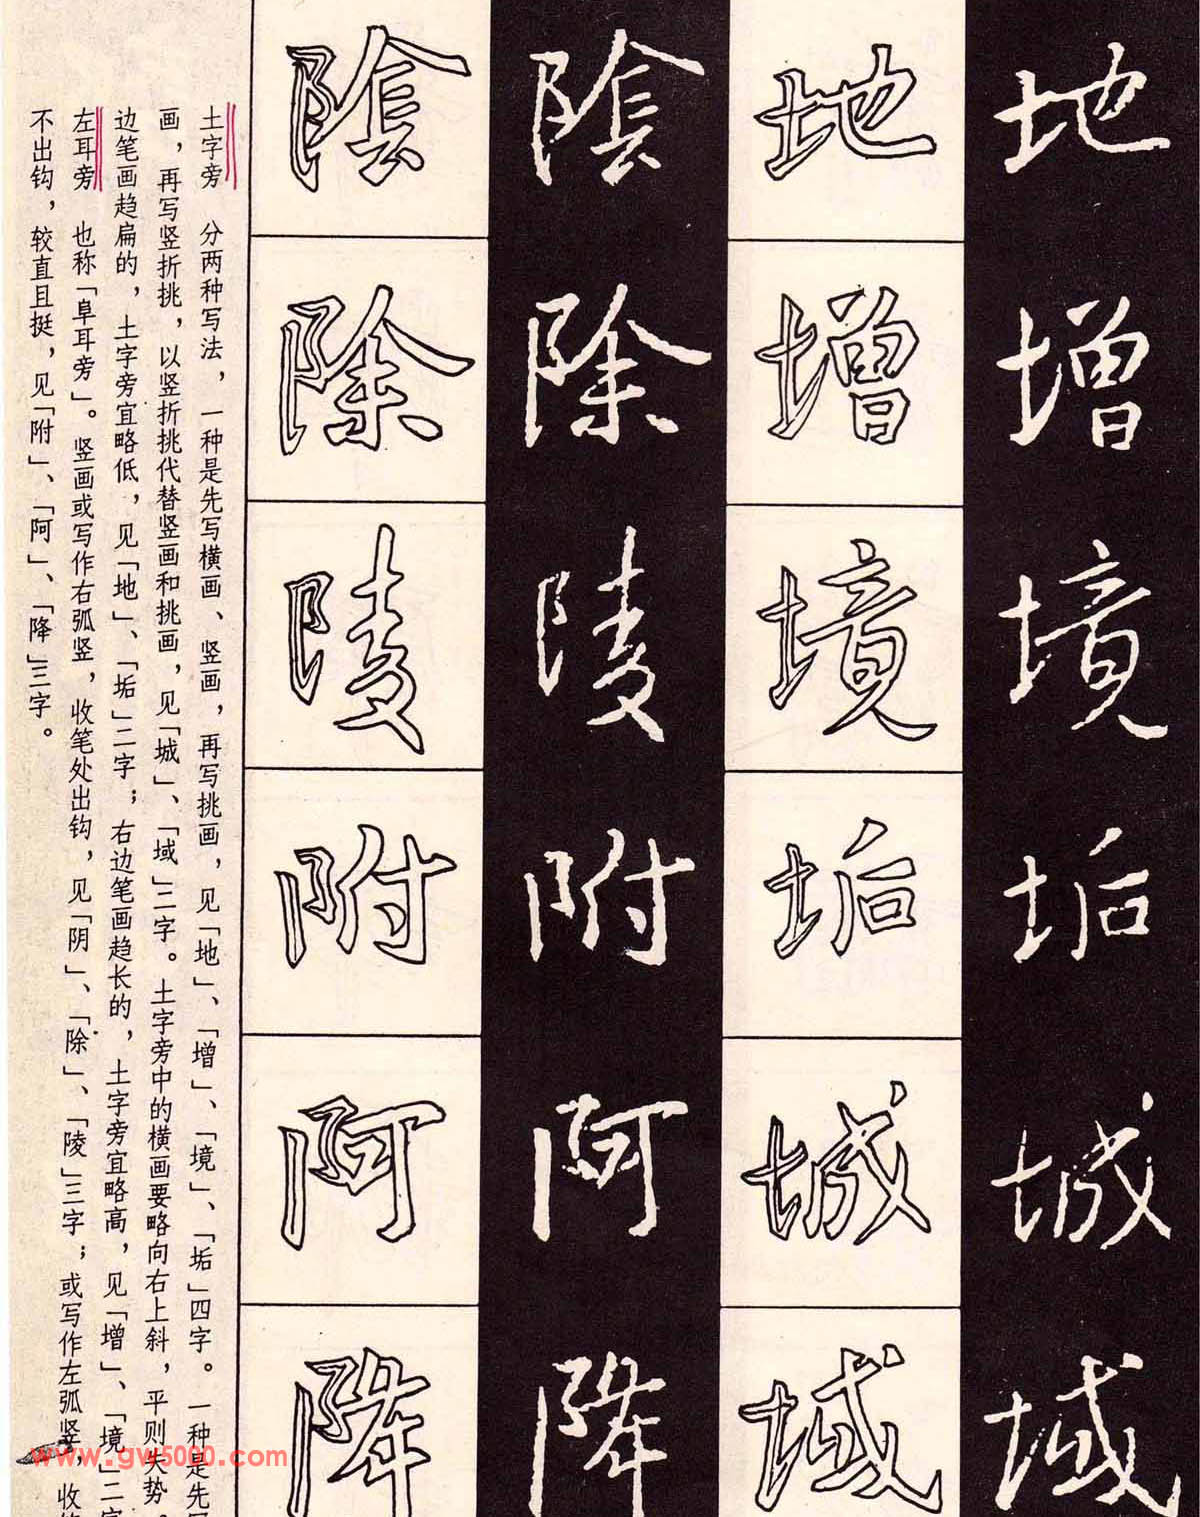 地增境垢城域
地增境垢城域
陰除陵附阿降
陰除陵附阿降
土字旁　分两种写法，一种是先写横画、竖画，再写挑画，见「地」、「增」、「境」、「垢」四字。一种是先
画，再写竖折挑，以竖折挑代替竖画和挑画，见「城」、「域」二字。土字旁中的横画要略向右上斜，平则失势。
边笔画趋扁的，土字旁宜略低，见「地」、「垢」二字；右边笔画趋长的，土字旁宜略高，见「增」、「境」二字
左耳旁　也称「阜耳旁」。竖画或写作右弧竖，收笔处出钩，见「阴」、「除」、「陵」三字；或写作左弧竖，收
不出钩，较直且挺，见「附」、「阿」、「降」三字。
www.gw5000.com